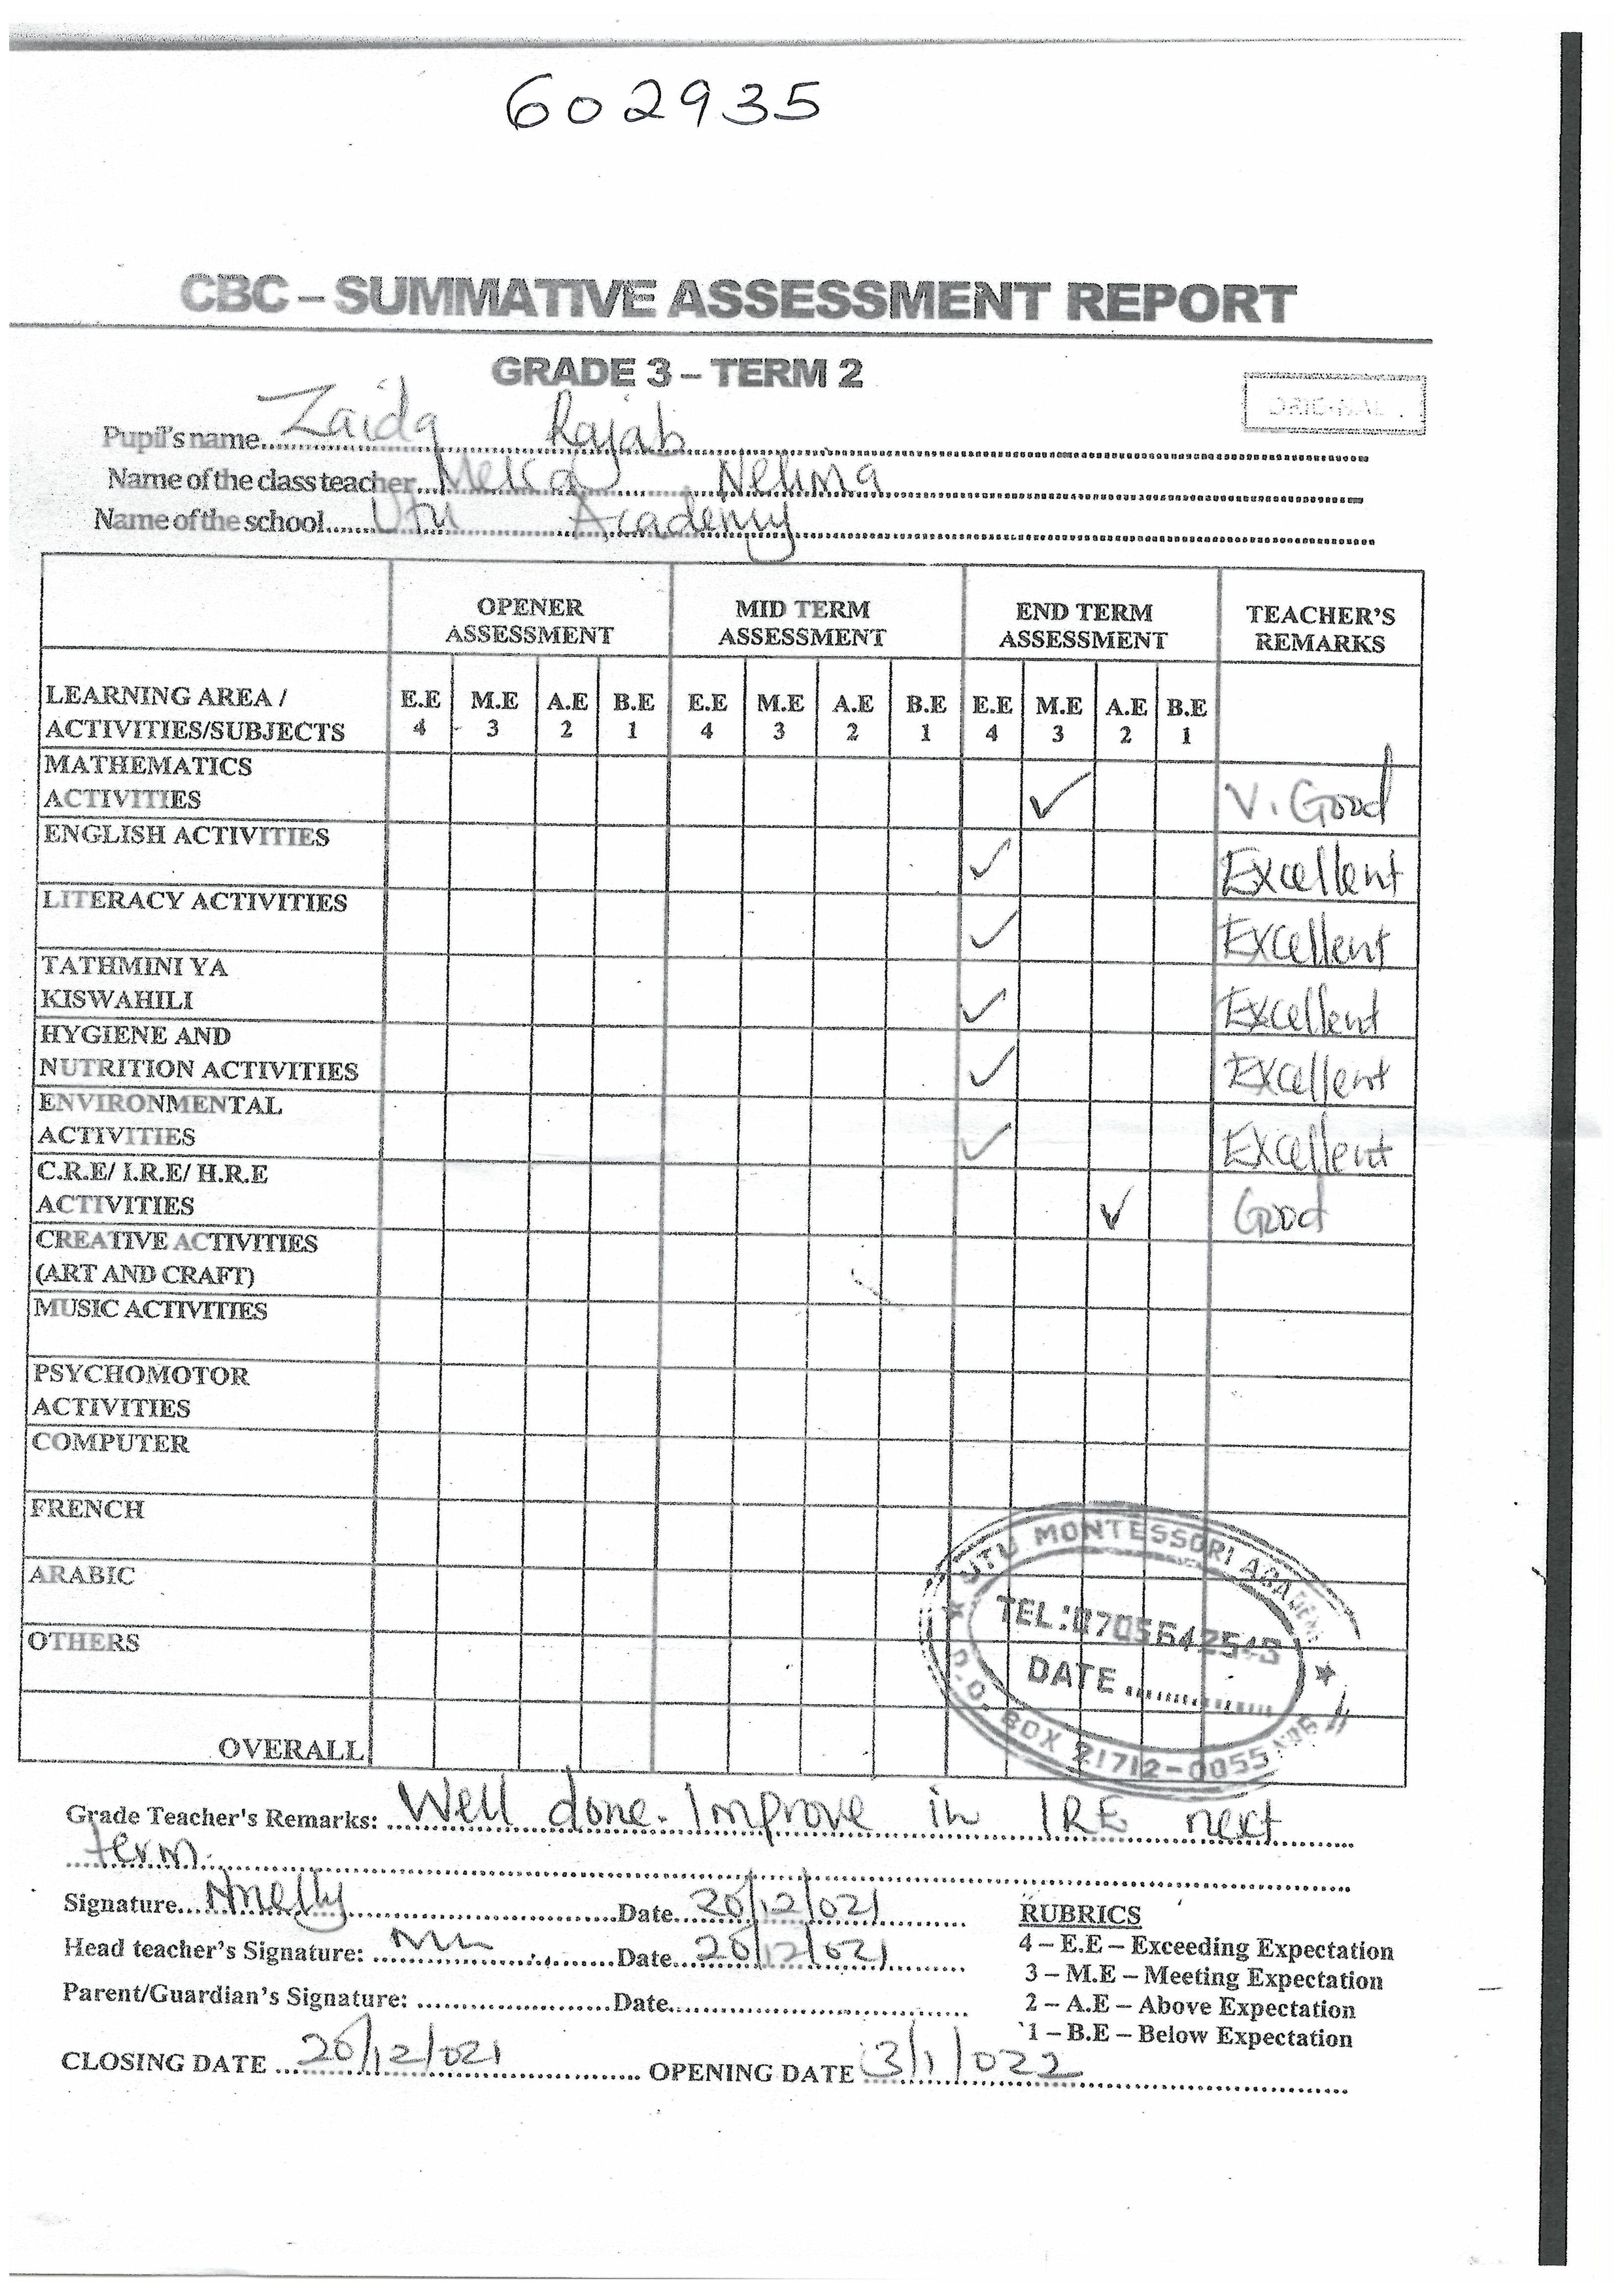 602935
CBC – SUMMATIVE ASSESSMENT REPORT
GRADE 3 – TERM 2
Pupil's name Zaida Rajab
Name of the class teacher Nelima
Name of the school Utu Academy
OPENER ASSESSMENT MID TERM ASSESSMENT END TERM ASSESSMENT TEACHER'S REMARKS
LEARNING AREA / ACTIVITIES/SUBJECTS E.E 4 M.E 3 A.E 2 B.E 1 E.E 4 M.E 3 A.E 2 B.E 1 E.E 4 M.E 3 A.E 2 B.E 1
MATHEMATICS ACTIVITIES ✓ V. Good
ENGLISH ACTIVITIES ✓ Excellent
LITERACY ACTIVITIES ✓ Excellent
TATHMINI YA KISWAHILI ✓ Excellent
HYGIENE AND NUTRITION ACTIVITIES ✓ Excellent
ENVIRONMENTAL ACTIVITIES ✓ Excellent
C.R.E/ I.R.E/ H.R.E ACTIVITIES ✓ Good
CREATIVE ACTIVITIES (ART AND CRAFT)
MUSIC ACTIVITIES
PSYCHOMOTOR ACTIVITIES
COMPUTER
FRENCH
ARABIC
OTHERS
OVERALL
UTU MONTESSORI
DATE
P.O. BOX 21712-
Grade Teacher's Remarks: Well done. Improve in IRE next
term.
Signature Date 20/12/021
Head teacher's Signature: Date 20/12/021
Parent/Guardian's Signature: Date
CLOSING DATE 20/12/021 OPENING DATE 3/1/022
RUBRICS
4 – E.E – Exceeding Expectation
3 – M.E – Meeting Expectation
2 – A.E – Above Expectation
1 – B.E – Below Expectation